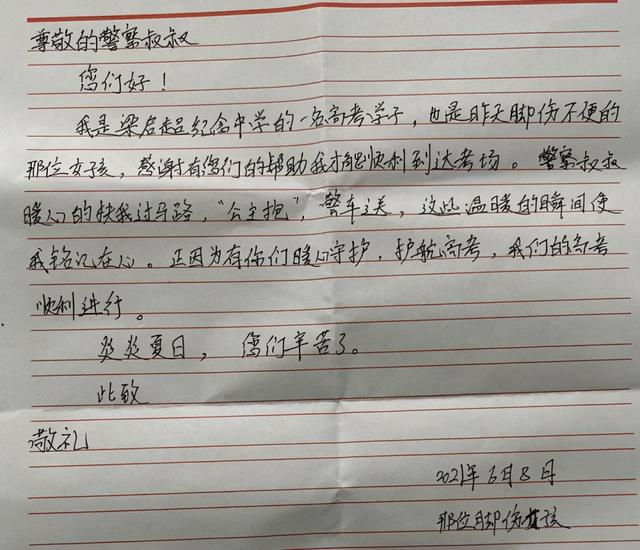 尊敬的警察叔叔
您们好！
我是梁启超纪念中学的一名高考学子，也是昨天脚伤不便的
那位女孩，感谢有您们的帮助我才能顺利到达考场。警察叔叔
暖心的扶我过马路，“公主抱”，警车送，这些温暖的瞬间使
我铭记在心。正因为有你们暖心守护，护航高考，我们的高考
顺利进行。
炎炎夏日，您们辛苦了。
此致
敬礼
2021年6月8日
那位脚伤女孩